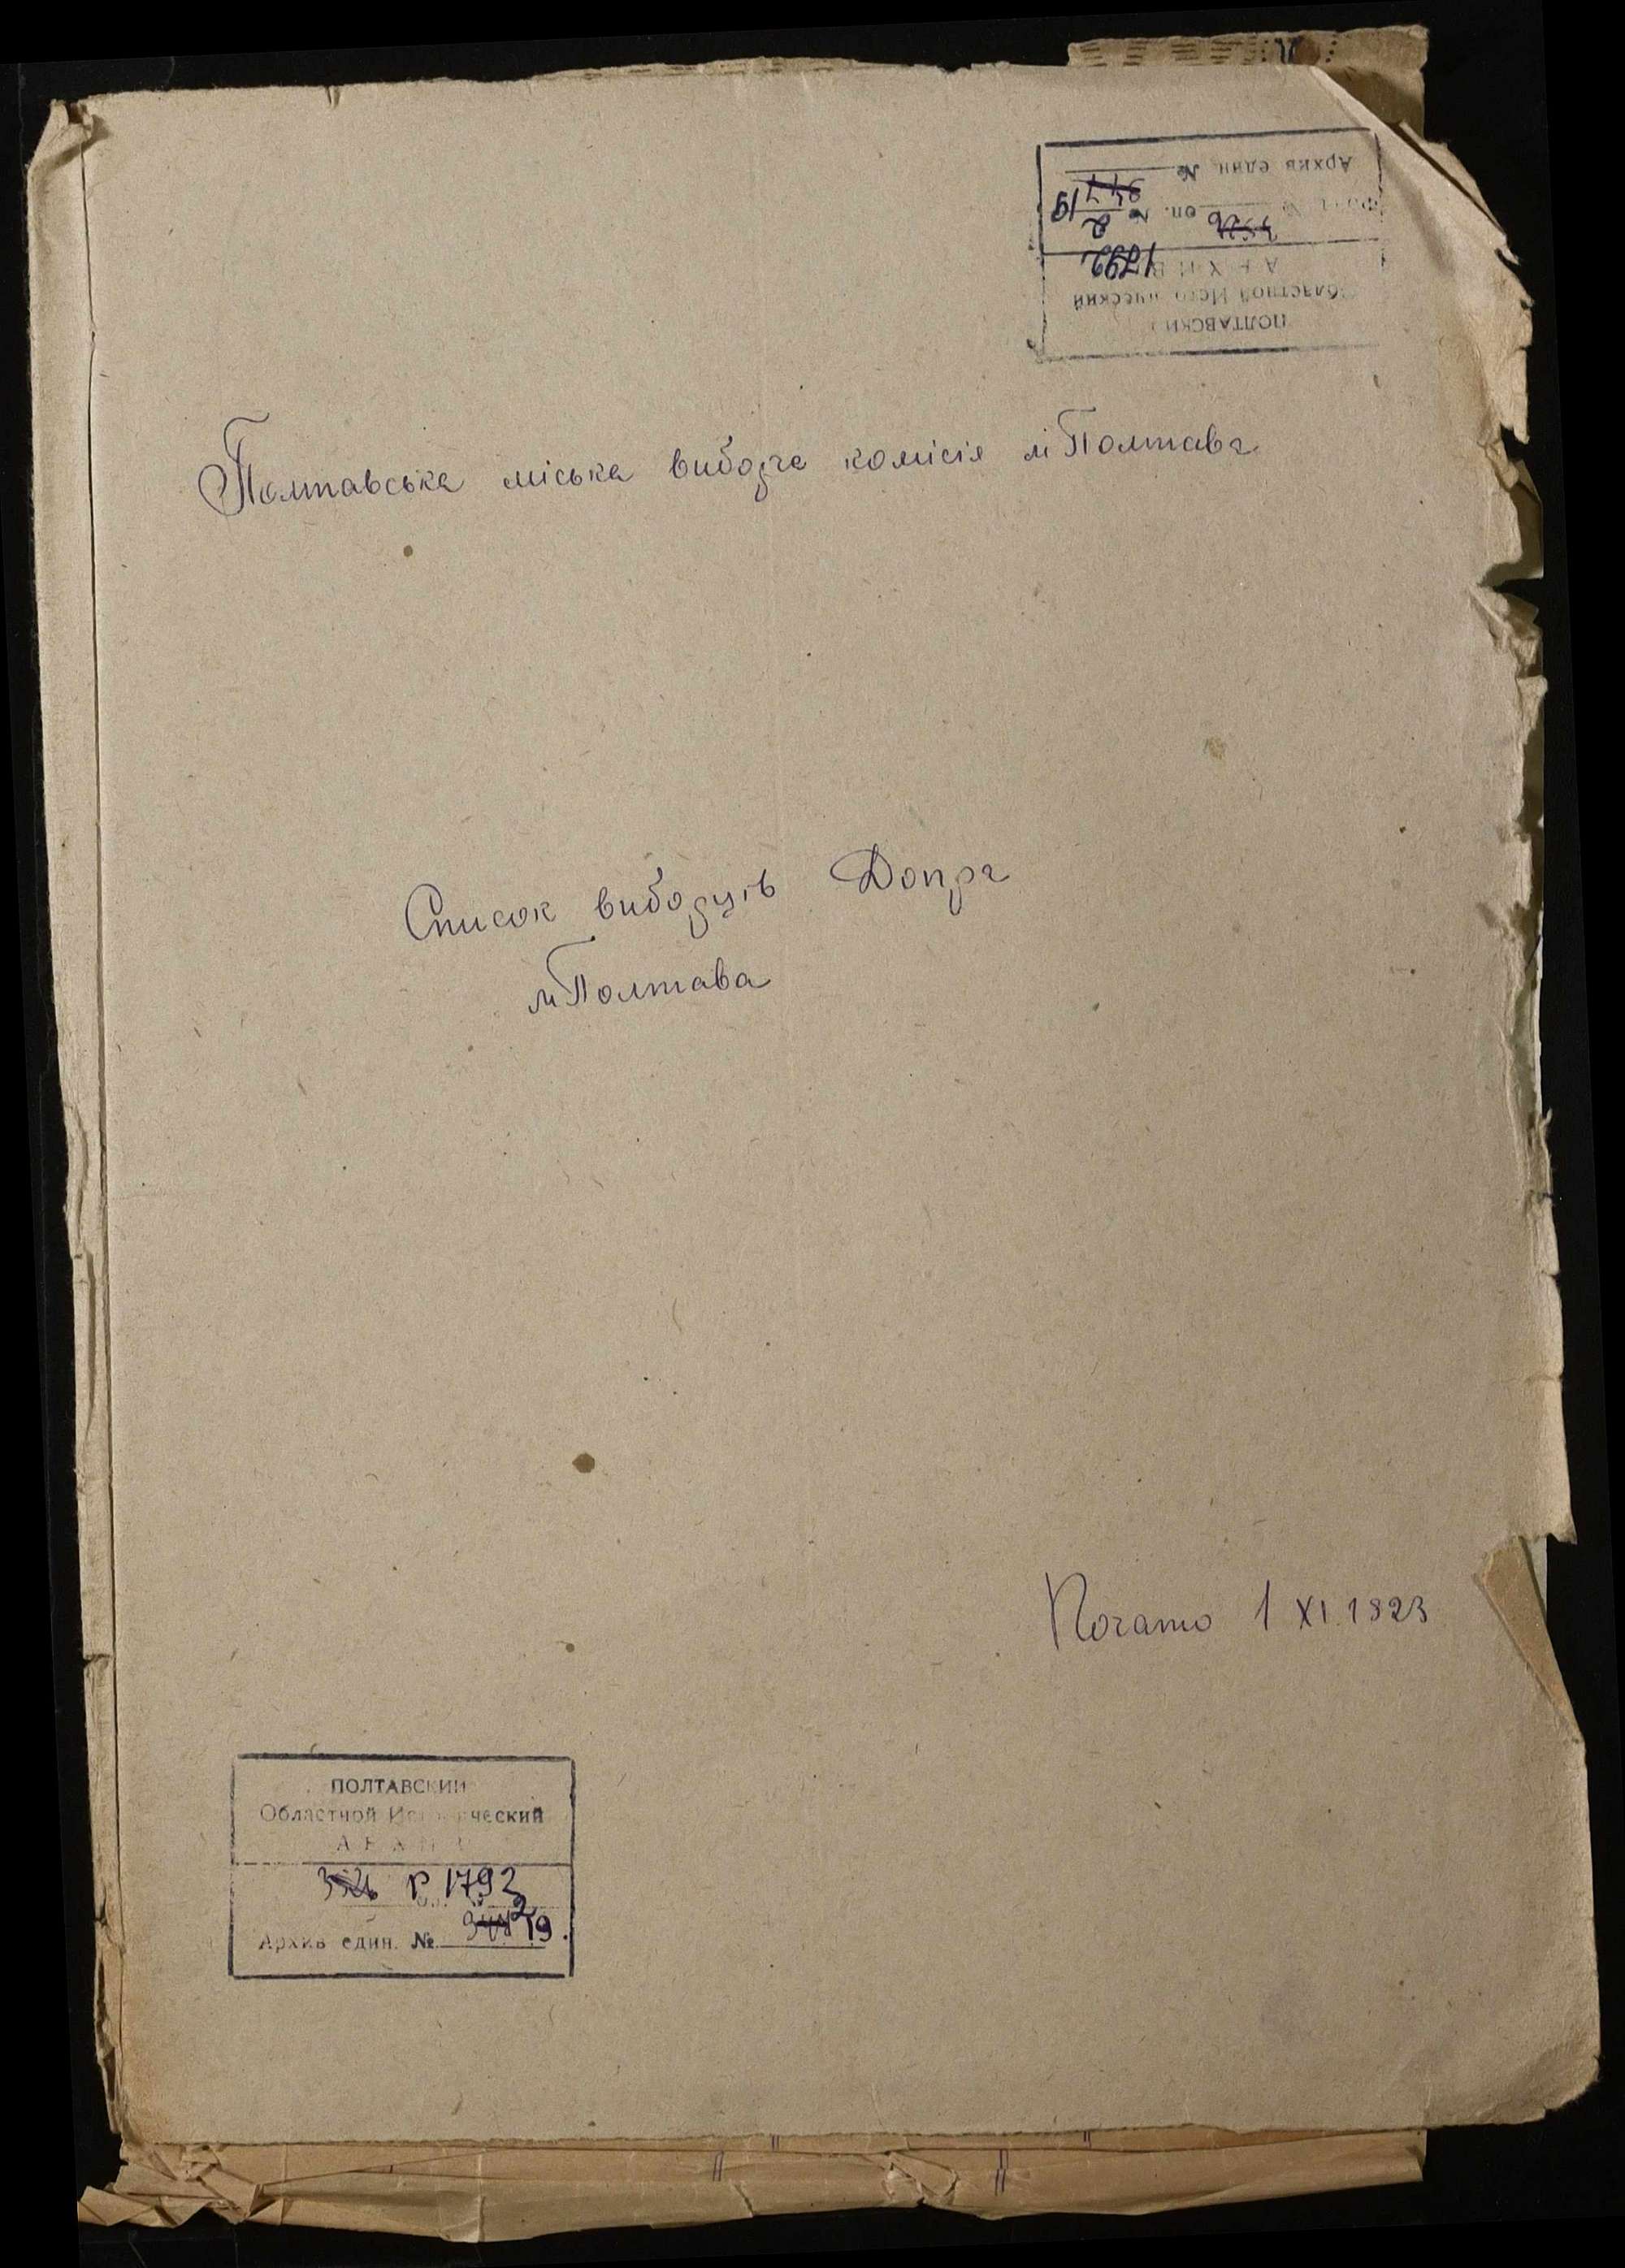 Архив един. №
оп. № 2 19
1792
АРХИВ
Областной Исторический
ПОЛТАВСКИЙ
Полтавська міська виборча комісія м Полтава
Список виборців Допра
м Полтава
Почато 1 XI. 1923
ПОЛТАВСКИЙ
Областной Исторический
АРХИВ
326 Р 1792
2
Архив един. № 19.